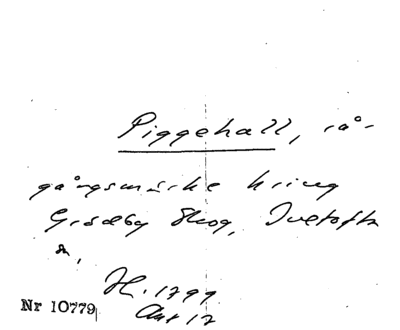 Piggehall, rå-
gångsmärke kring
Grödby Skog, Ivetofta
sn,
H. 1799
Akt 17
Nr 10779